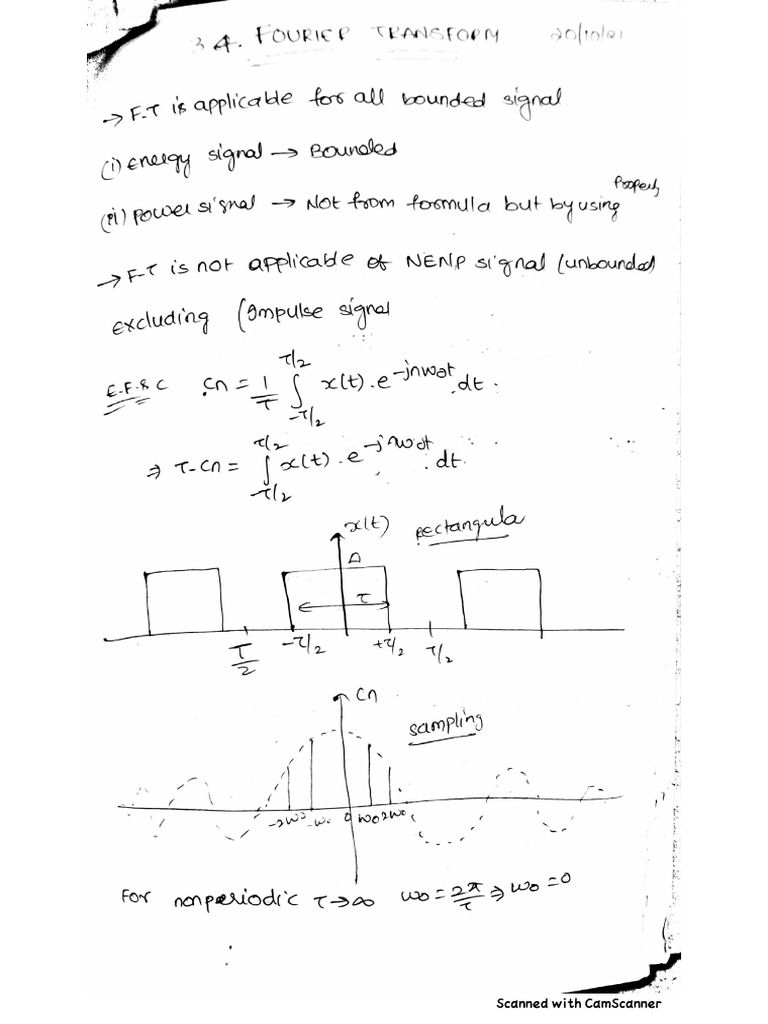 34. FOURIER TRANSFORM 20/10/21
→ F.T is applicable for all bounded signal
(i) Energy signal → Bounded
Property
(ii) power signal → Not from formula but by using
→ F.T is not applicable of NENP signal (unbounded)
excluding (Impulse signal
E.F.S.C Cn = 1/T ∫ T/2 -T/2 x(t).e^-jnω0t .dt.
⇒ T.Cn = ∫ T/2 -T/2 x(t).e^-jnω0t .dt.
x(t) Rectangula
A
τ
T/2 -τ/2 +τ/2 T/2
Cn
sampling
-2ω0 -ω0 0 ω0 2ω0
For nonperiodic T→∞ ω0 = 2π/T ⇒ ω0 = 0
Scanned with CamScanner